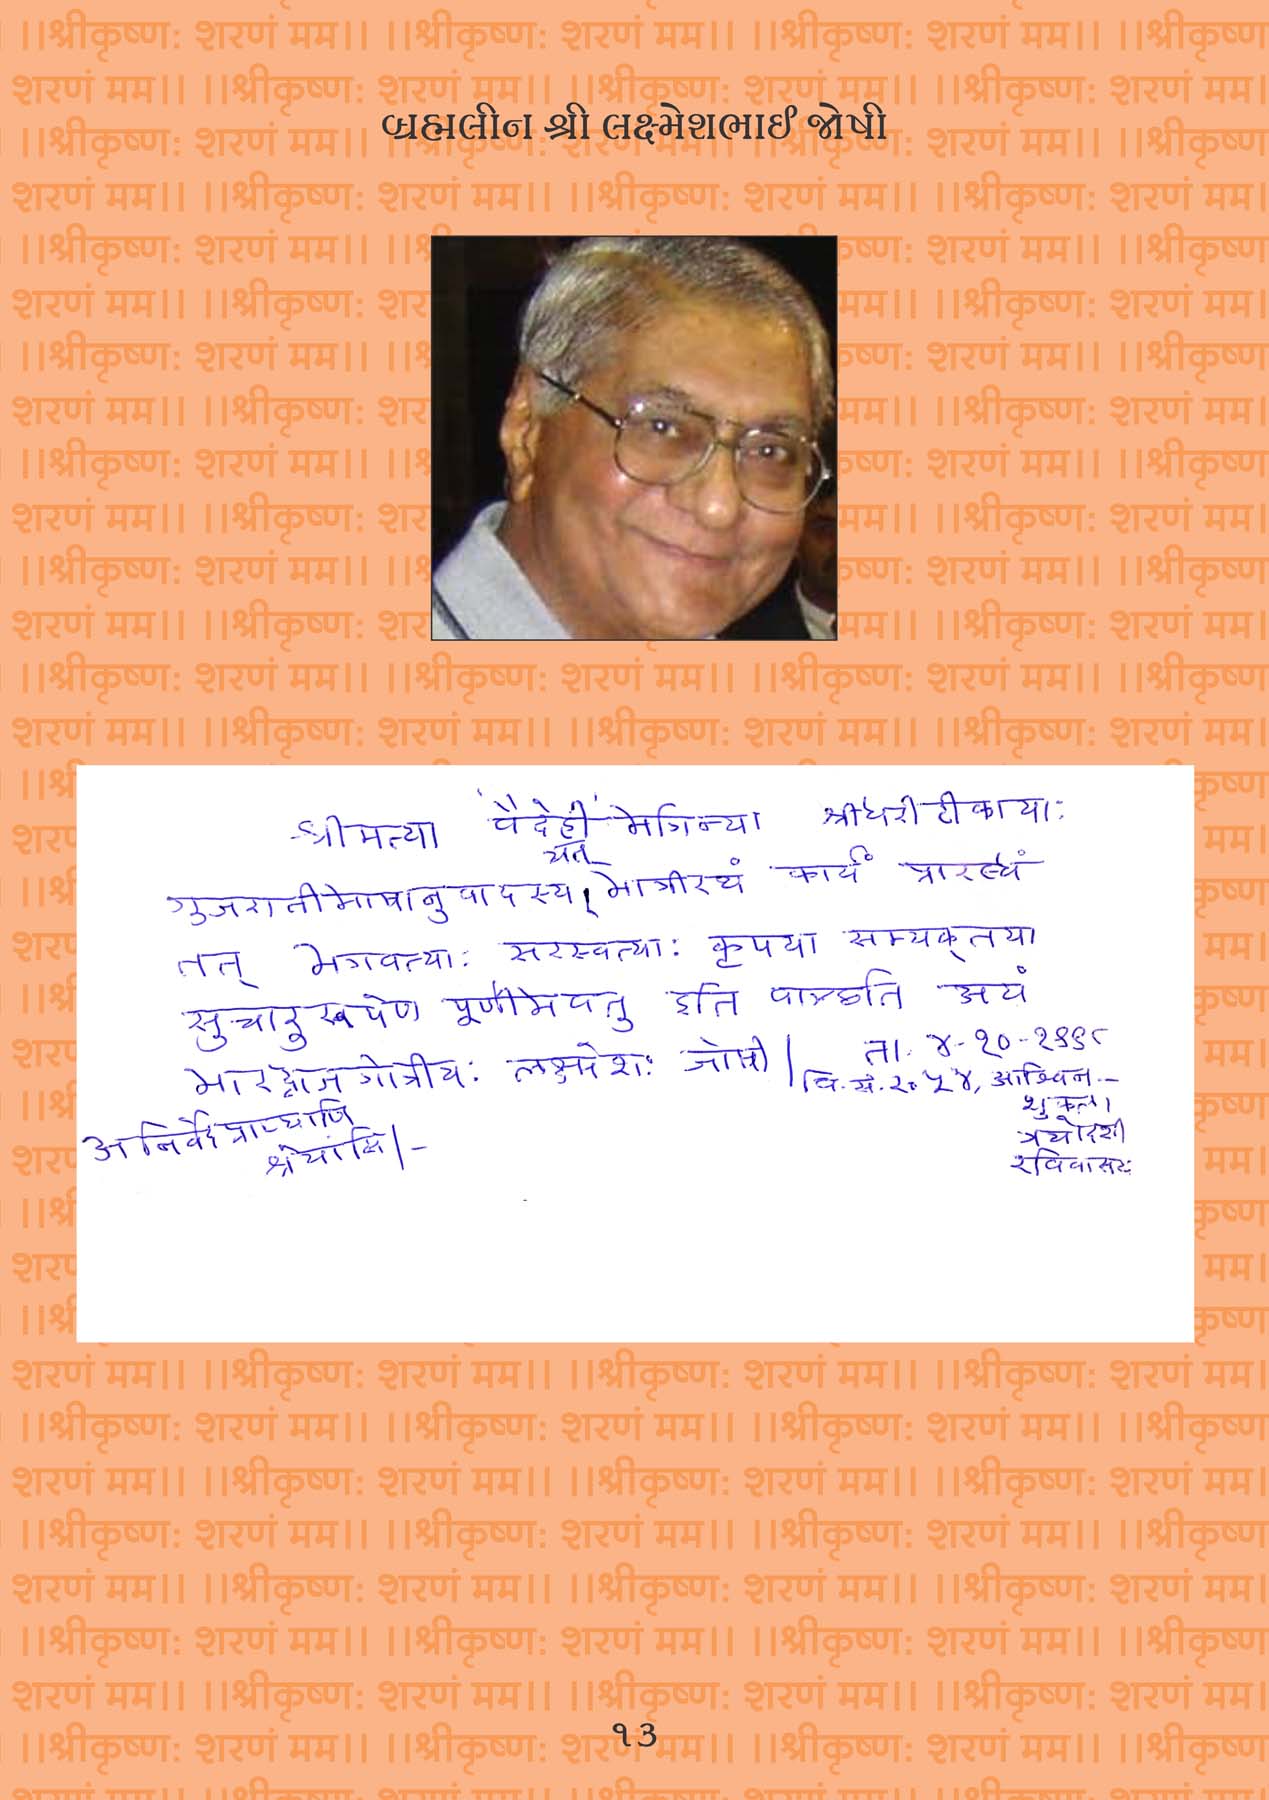 બ્રહ્મલીન શ્રી લક્ષ્મેશભાઈ જોષી
श्रीमत्या 'वैदेही' भगिन्या श्रीधरीटीकायाः
यत्
गुजरातीभाषानुवादस्य भागीरथं कार्यं प्रारब्धं
तत् भगवत्याः सरस्वत्याः कृपया सम्यक्तया
सुचारुरूपेण पूर्णीभवतु इति वाञ्छति अयं
भारद्वाजगोत्रीयः लक्ष्मेशः जोषी|
ता. ४-१०-१९९८
वि.सं.२०५४, आश्विन-
शुक्ला
त्रयोदशी
रविवासरः
अनिर्वेदप्राप्याणि
श्रेयांसि|-
૧૩